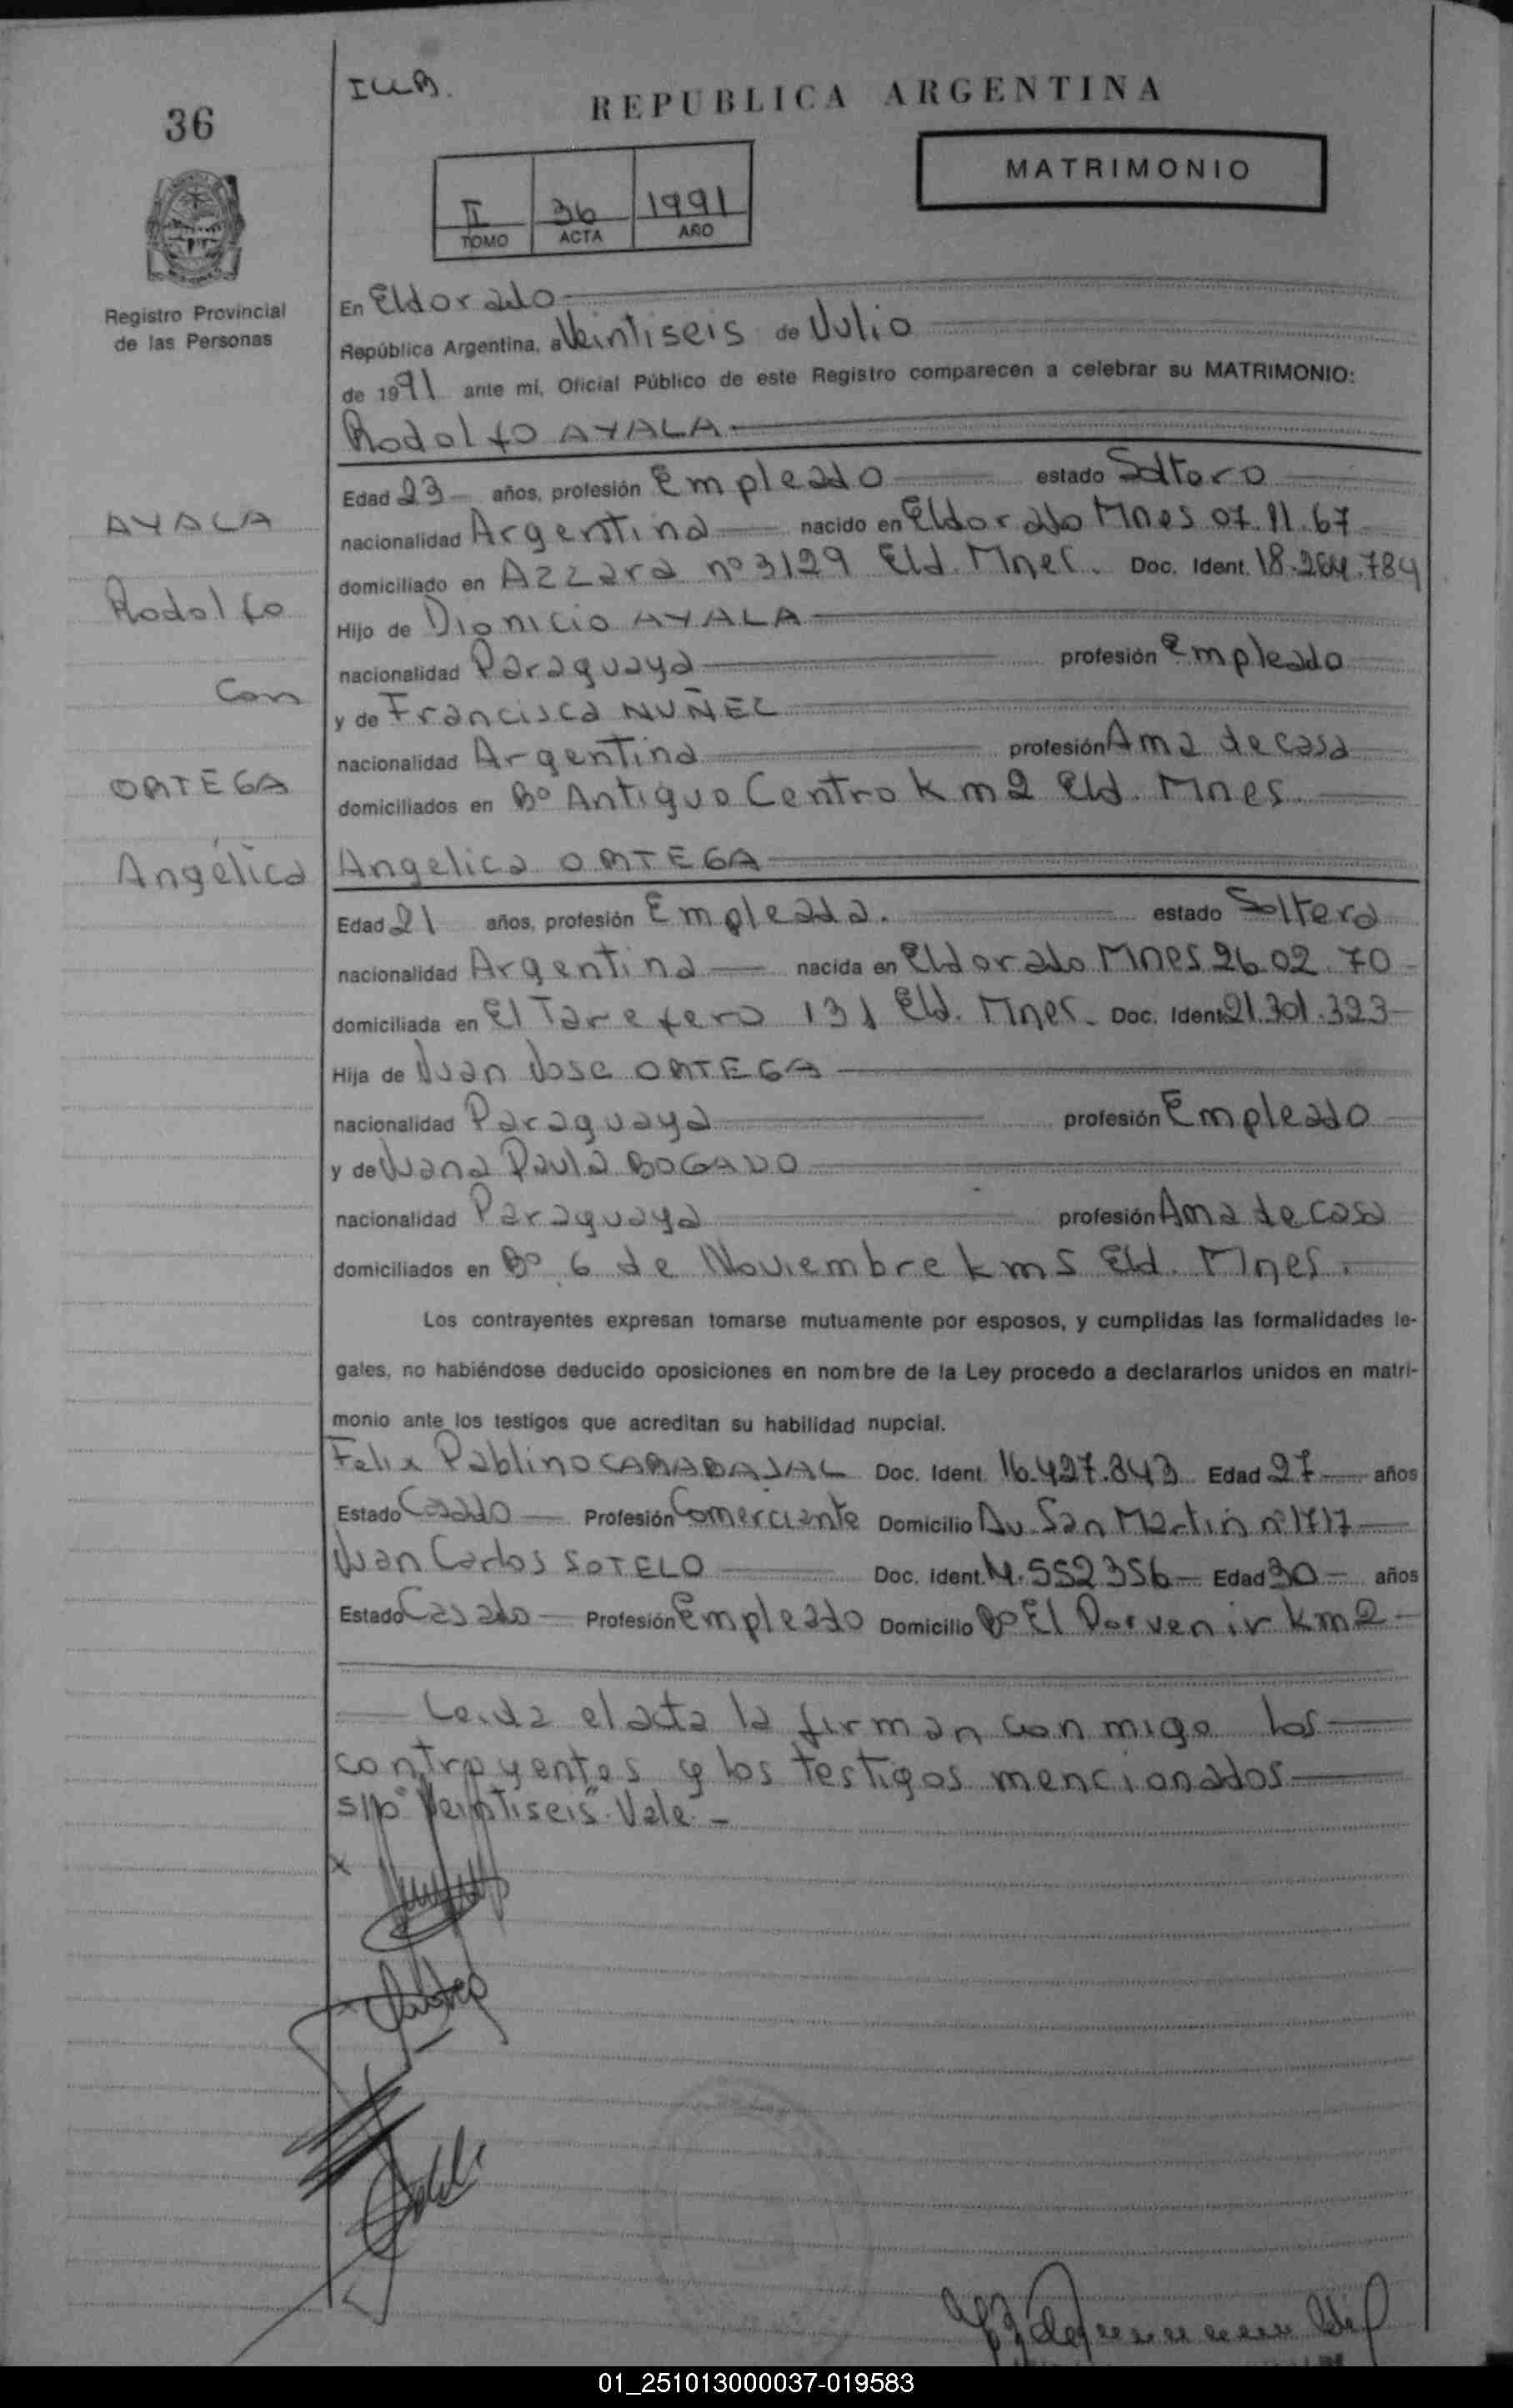 I.U.B.
REPUBLICA ARGENTINA
36
MATRIMONIO
II 36 1991
TOMO ACTA AÑO
Registro Provincial
de las Personas
En Eldorado
República Argentina, a Veintiseis de Julio
de 1991 ante mí, Oficial Público de este Registro comparecen a celebrar su MATRIMONIO:
Rodolfo AYALA
Edad 23 años, profesión Empleado estado Soltero
AYALA
nacionalidad Argentina nacido en Eldorado Mnes 07.11.67
domiciliado en Azzara nº 3129 Eld. Mnes. Doc. Ident. 18.264.784
Rodolfo
Hijo de Dionicio AYALA
nacionalidad Paraguaya profesión Empleado
Con
y de Francisca NUÑEZ
nacionalidad Argentina profesión Ama de casa
ORTEGA
domiciliados en Bº Antiguo Centro km 2 Eld. Mnes.
Angélica
Angelica ORTEGA
Edad 21 años, profesión Empleada. estado Soltera
nacionalidad Argentina nacida en Eldorado Mnes 26.02.70
domiciliada en El Tarefero 131 Eld. Mnes. Doc. Ident. 21.301.323
Hija de Juan Jose ORTEGA
nacionalidad Paraguaya profesión Empleado
y de Juana Paula BOGADO
nacionalidad Paraguaya profesión Ama de casa
domiciliados en Bº 6 de Noviembre km 5 Eld. Mnes.
Los contrayentes expresan tomarse mutuamente por esposos, y cumplidas las formalidades le-
gales, no habiéndose deducido oposiciones en nombre de la Ley procedo a declararlos unidos en matri-
monio ante los testigos que acreditan su habilidad nupcial.
Felix Pablino CARABAJAL Doc. Ident. 16.427.843 Edad 27 años
Estado Casado Profesión Comerciante Domicilio Av. San Martin nº 1717
Juan Carlos SOTELO Doc. Ident. M.552356 Edad 30 años
Estado Casado Profesión Empleado Domicilio Bº El Porvenir km 2
Leida el acta la firman conmigo los
contrayentes y los testigos mencionados
s/p "Veintiseis" Vale.-
x
01_251013000037-019583